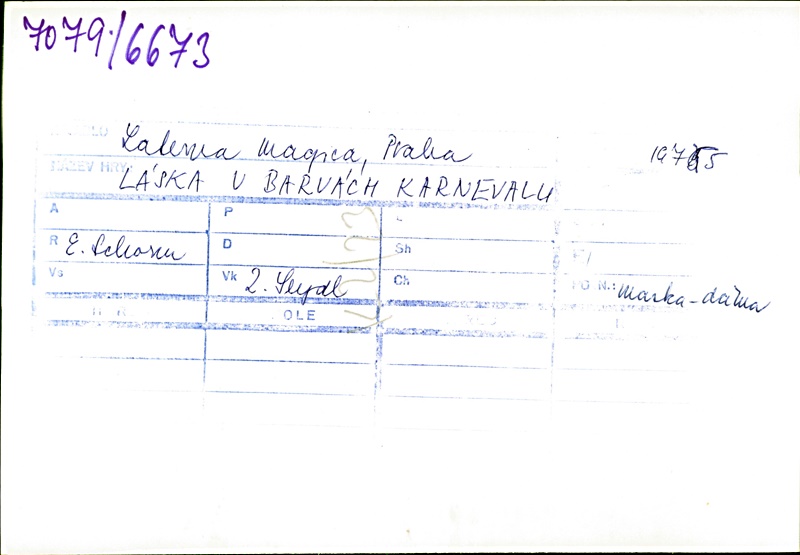 7079/6673
Laterna Magica, Praha
NÁZEV HRY: LÁSKA V BARVÁCH KARNEVALU
A P
R E. Schorm D Sh
Vs Vk Z. Seydl Ch
maska - dáma
OLE